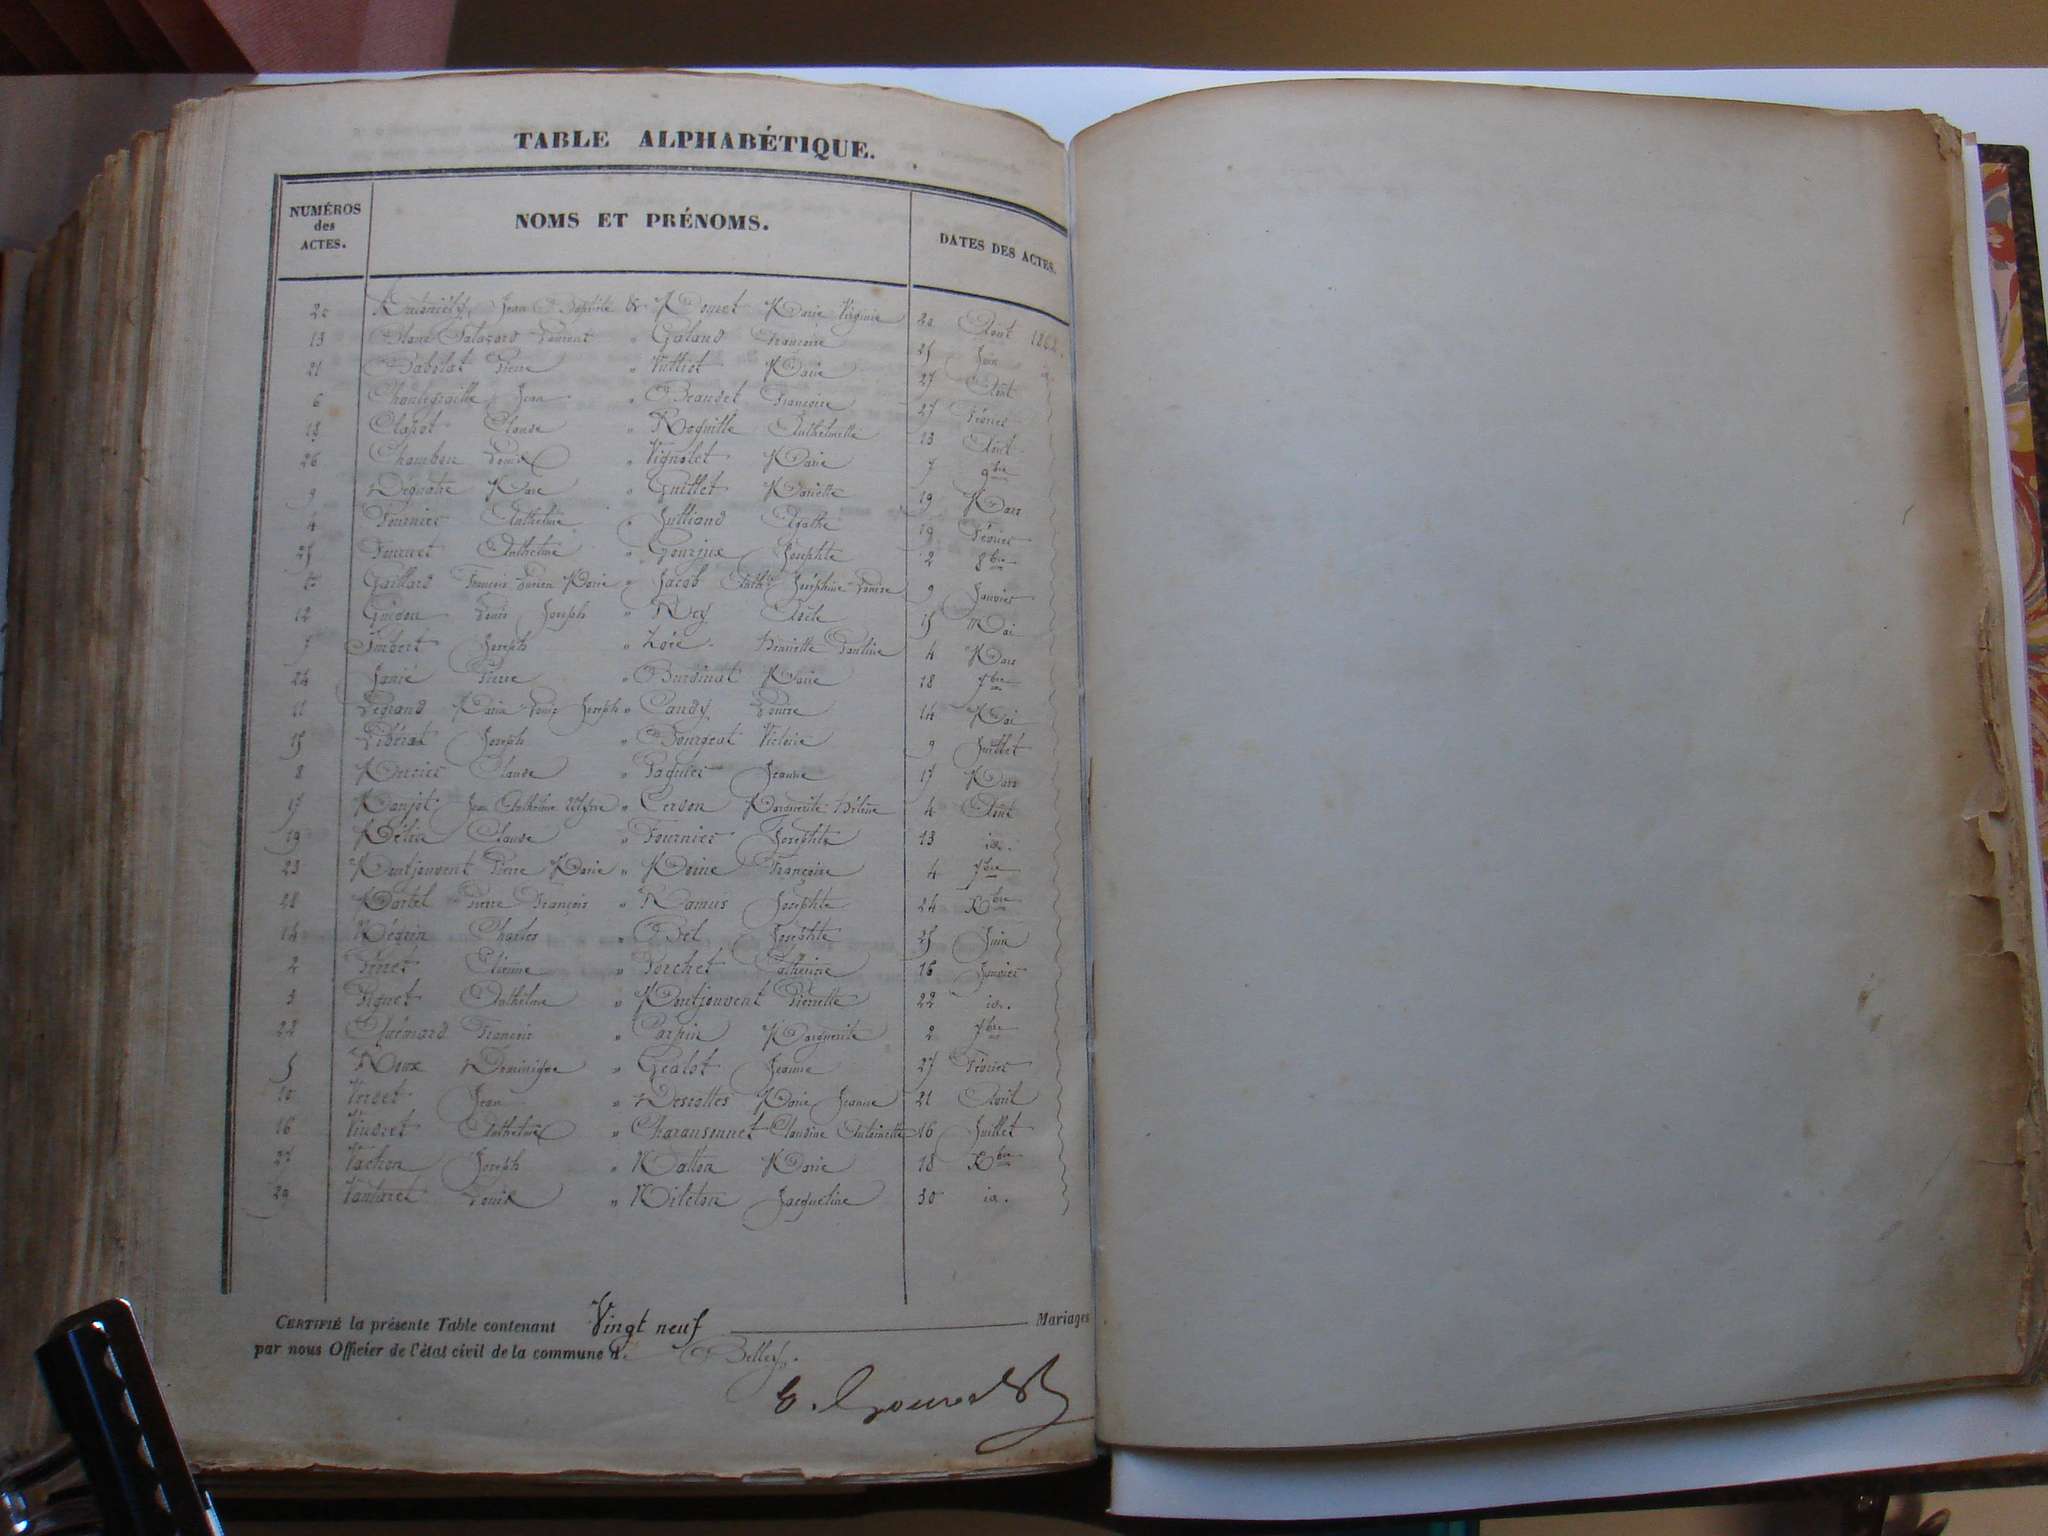 TABLE ALPHABÉTIQUE.
NUMÉROS des ACTES.
NOMS ET PRÉNOMS.
DATES DES ACTES.
20 Jean Baptiste & Marie Virginie 20 Août 1862.
13 Blanc Salazard Laurent " Galand Françoise 25 Juin id.
21 Babolat Pierre " Vulliet Marie 27 Août
6 Jean " Françoise 27 Février
18 Clapot Claude " Roguille Anthelmette 13 Août
26 Chambon Louis " Vignolet Marie 7 9bre
9 Marc " Guillet Mariette 19 Mars
4 Fournier Anthelme " Julliand Agathe 19 Février
25 Anthelme " Gourjux Josephte 2 8bre
1er Gaillard François Lucien Marie " Jacob Anthte Joséphine Louise 9 Janvier
12 Guédon Louis Joseph " Rey 15 Mai
7 Imbert Joseph " Henriette Pauline 4 Mars
24 Janié Pierre " Burdinat Marie 18 7bre
11 Legrand Marie Louis Joseph " Candy Louise 14 Mai
15 Joseph " Bourgeat Victoire 9 Juillet
8 Mercier Claude " Paquier Jeanne 17 Mars
17 Manjot Jean Anthelme " Cerdon Marguerite Hélène 4 Août
19 Mélin Claude " Fournier Josephte 13 id.
23 Montjouvent Pierre Marie " Moine Françoise 4 7bre
28 Martel Pierre François " Ramus Josephte 24 Xbre
14 Négrin Charles " Bel Josephte 25 Juin
2 Pinet Etienne " Porchet Catherine 16 Janvier
3 Piguet Anthelme " Montjouvent Pierrette 22 id.
22 Quénard François " Carpin Marguerite 2 7bre
5 Roux Dominique " Gealot Jeanne 27 Février
10 Verdet Jean " Descottes Marie Jeanne 21 Avril
16 Vindret Anthelme " Charansonnet Claudine Antoinette 16 Juillet
27 Vachon Joseph " Matton Marie 18 Xbre
29 Vantaret Louis " Milleton Jacqueline 30 id.
CERTIFIÉ la présente Table contenant Vingt neuf Mariages
par nous Officier de l'état civil de la commune d. Belley.